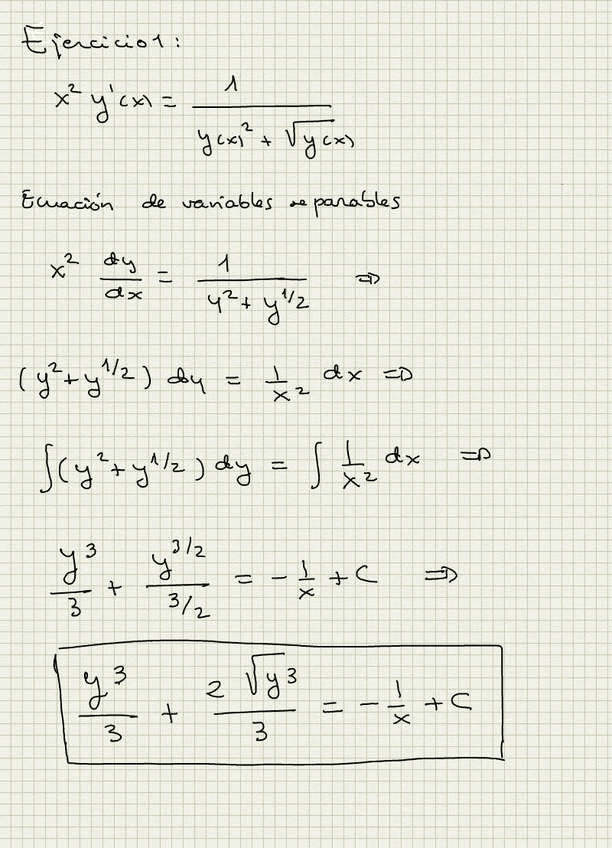 Ejercicio 1:
x² y'(x) = 1 / (y(x)² + √y(x))
Ecuación de variables separables
x² dy/dx = 1 / (y² + y^1/2) ⇒
(y² + y^1/2) dy = 1/x² dx ⇒
∫(y² + y^1/2) dy = ∫ 1/x² dx ⇒
y³/3 + y^3/2 / 3/2 = -1/x + C ⇒
y³/3 + 2√y³/3 = -1/x + C